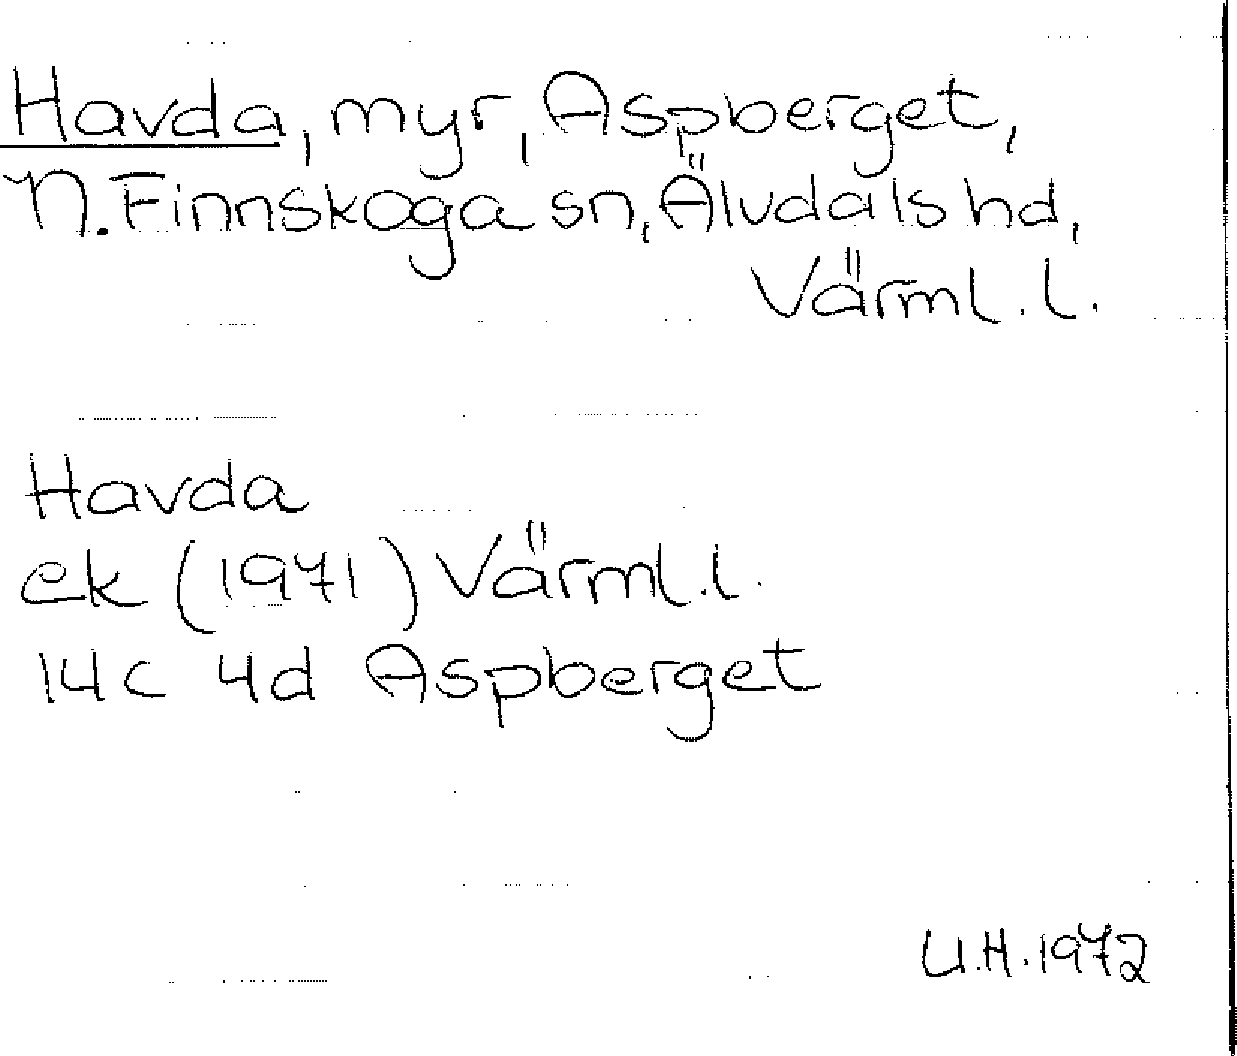 Havda, myr, Aspberget,
N. Finnskoga sn, Älvdals hd,
Värml. l.
Havda
ek (1971) Värml. l.
14c 4d Aspberget
U.H. 1972